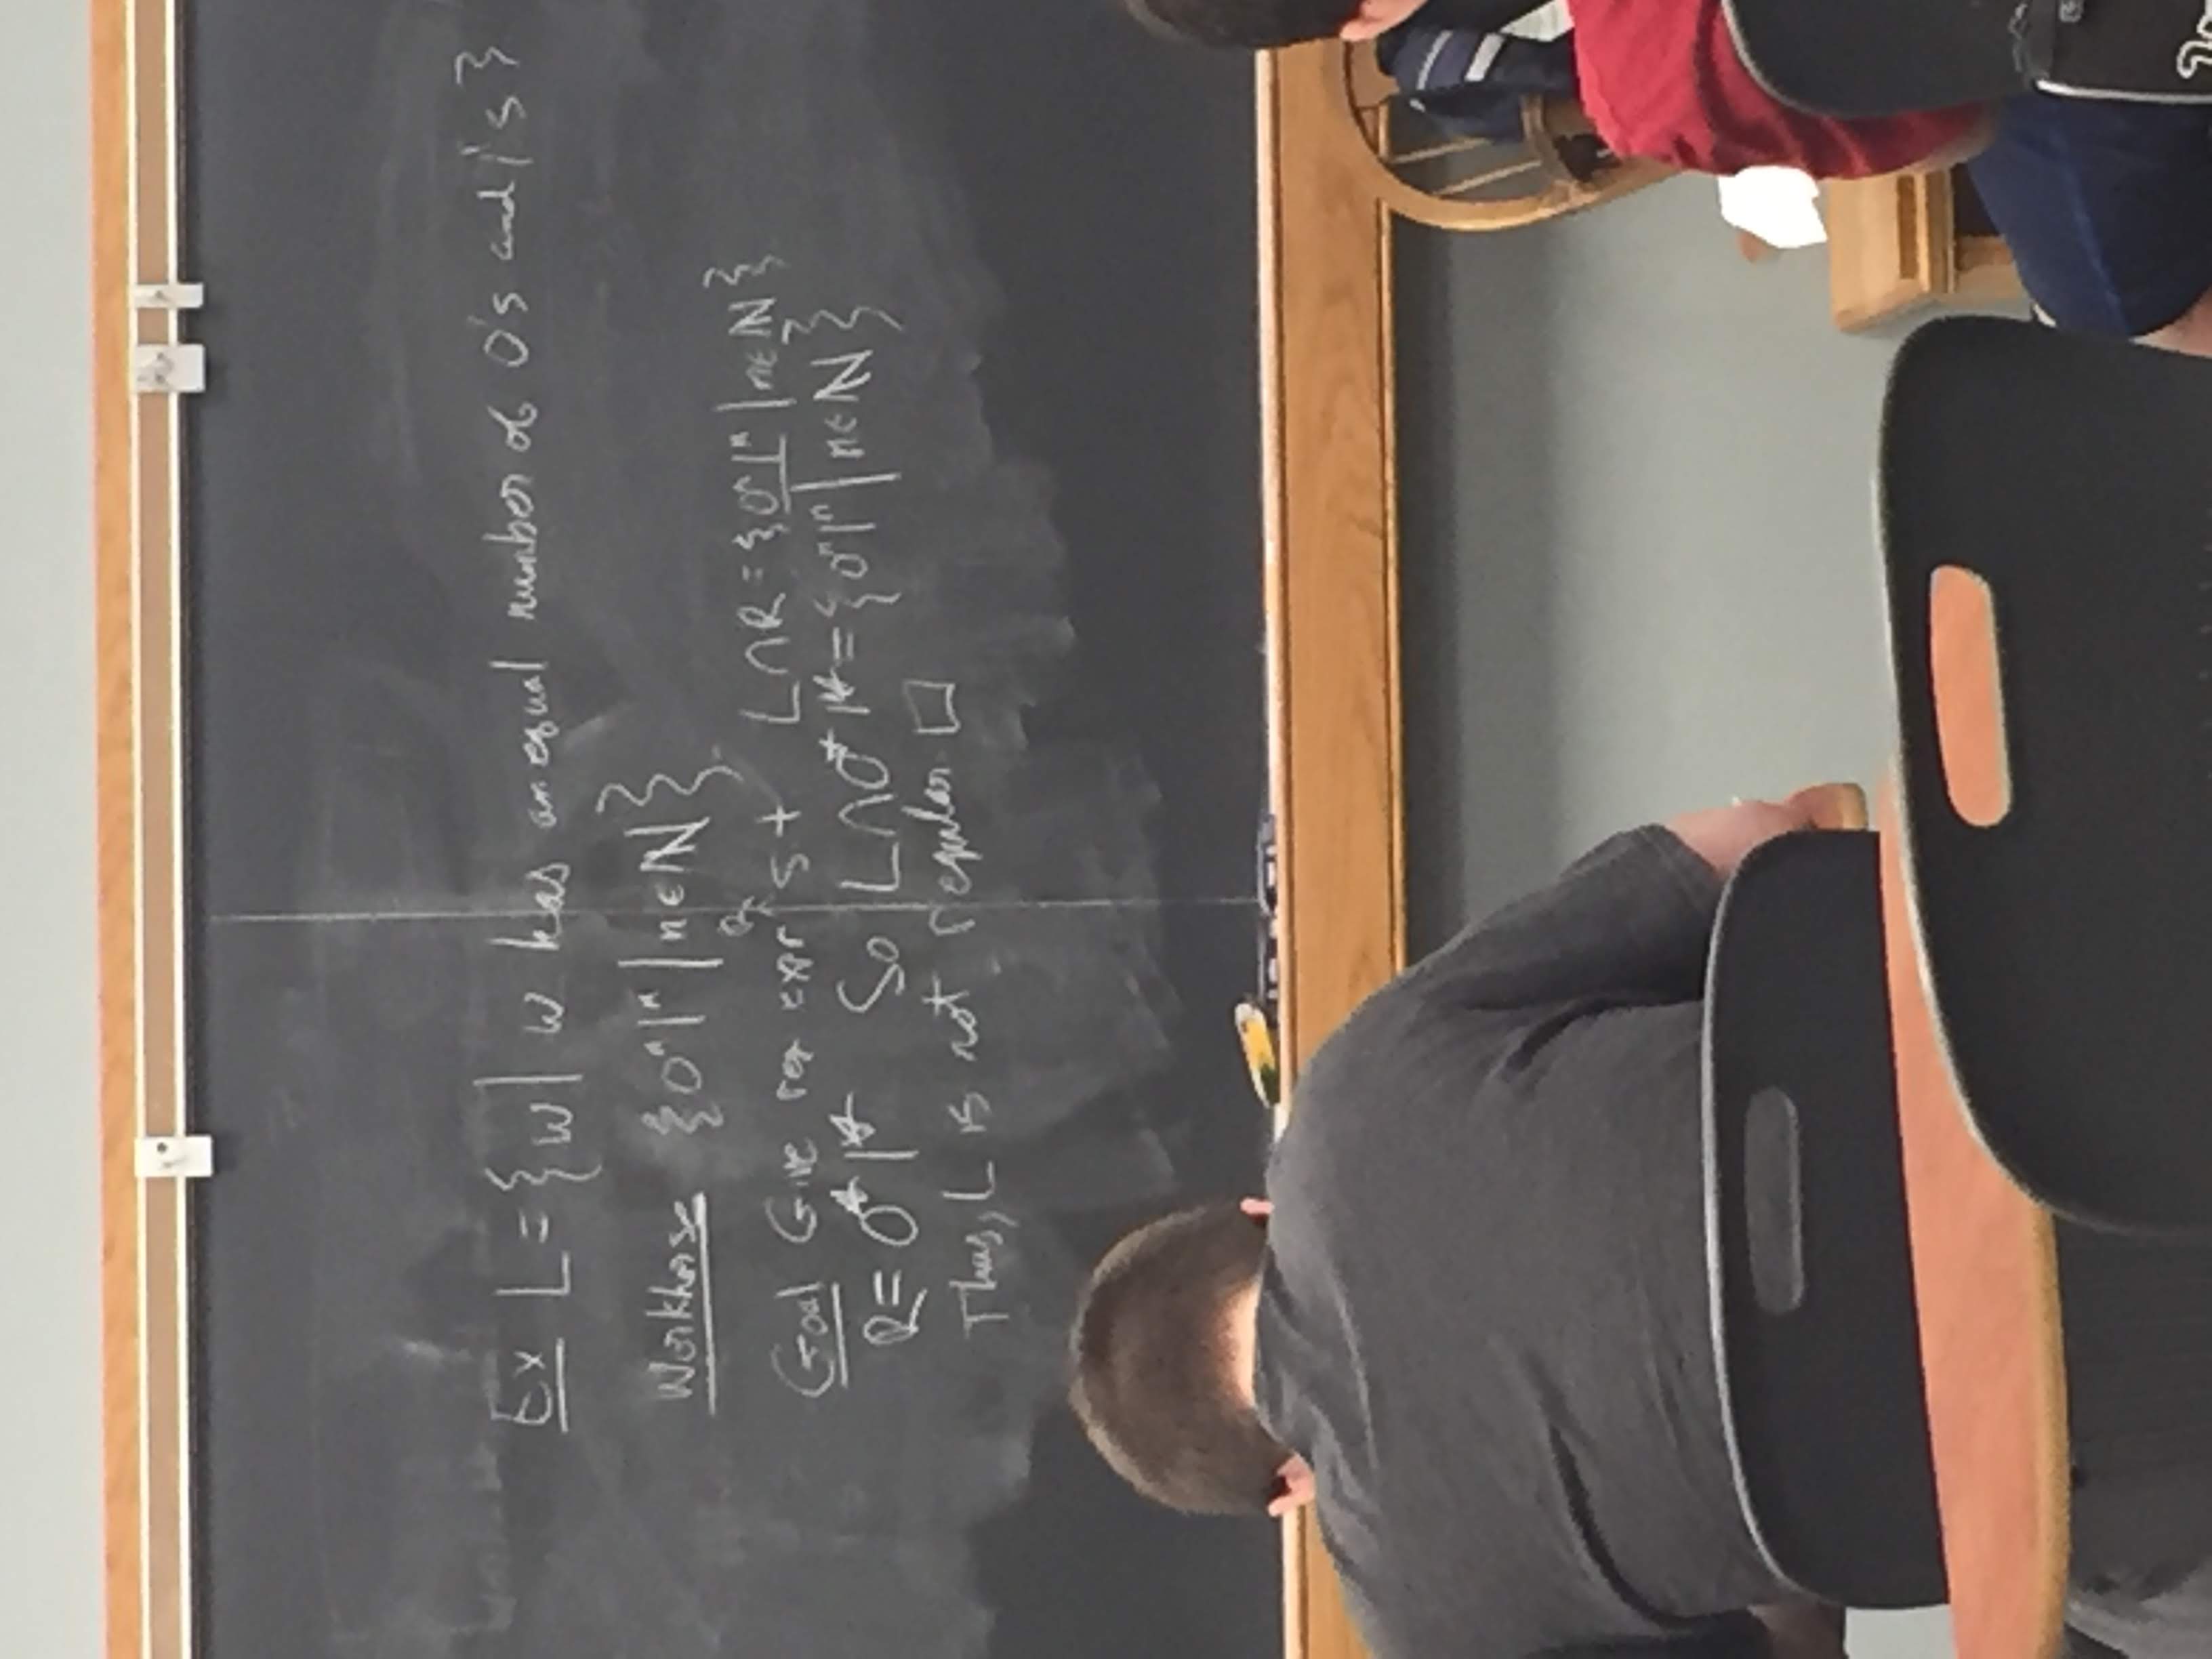 Ex L = {w | w has an equal number of 0's and 1's}
Workhorse {0ⁿ1ⁿ | n ∈ ℕ}.
Goal Give reg expr R st L∩R = {0ⁿ1ⁿ | n∈ℕ}
R = 0*1* So L∩0*1* = {0ⁿ1ⁿ | n∈ℕ}
Thus, L is not regular □